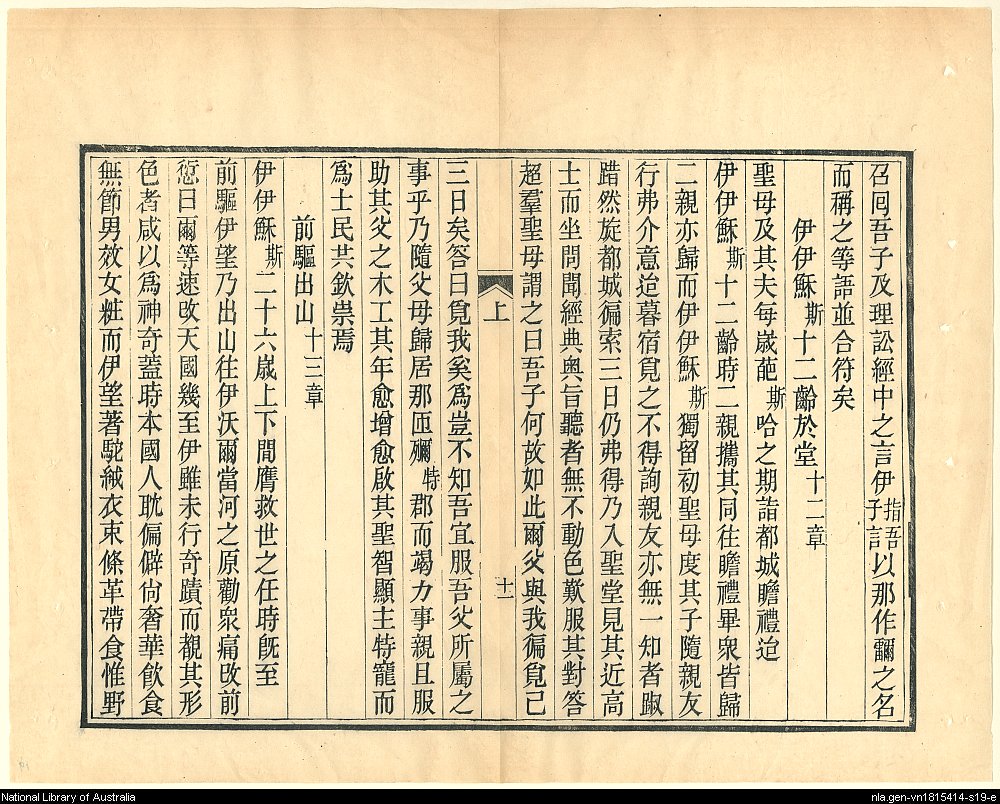 召囘吾子及理訟經中之言伊指吾子言以那作𤅀之名
而稱之等語並合符矣
伊伊穌斯十二齡於堂十二章
聖母及其夫每歲葩斯哈之期詣都城瞻禮迨
伊伊穌斯十二齡時二親攜其同往瞻禮畢衆皆歸
二親亦歸而伊伊穌斯獨留初聖母度其子隨親友
行弗介意迨暮宿覓之不得詢親友亦無一知者踧
踖然旋都城徧索三日仍弗得乃入聖堂見其近高
士而坐問聞經典奥旨聽者無不動色歎服其對答
超羣聖母謂之曰吾子何故如此爾父與我徧覓已
上
十一
三日矣答曰覓我奚爲豈不知吾宜服吾父所屬之
事乎乃隨父母歸居那匝殢特郡而竭力事親且服
助其父之木工其年愈增愈啟其聖智顯主特寵而
爲士民共欽崇焉
前驅出山十三章
伊伊穌斯二十六歲上下間膺救世之任時旣至
前驅伊望乃出山往伊沃爾當河之原勸衆痛改前
愆曰爾等速改天國幾至伊雖未行奇蹟而覩其形
色者咸以爲神奇蓋時本國人耽偏僻尙奢華飲食
無節男效女粧而伊望著駝絨衣束條革帶食惟野
National Library of Australia
nla.gen-vn1815414-s19-e